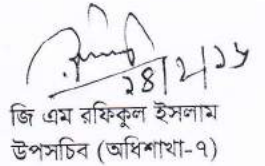 ২৪/২/১৬
জি এম রফিকুল ইসলাম
উপসচিব (অধিশাখা-৭)